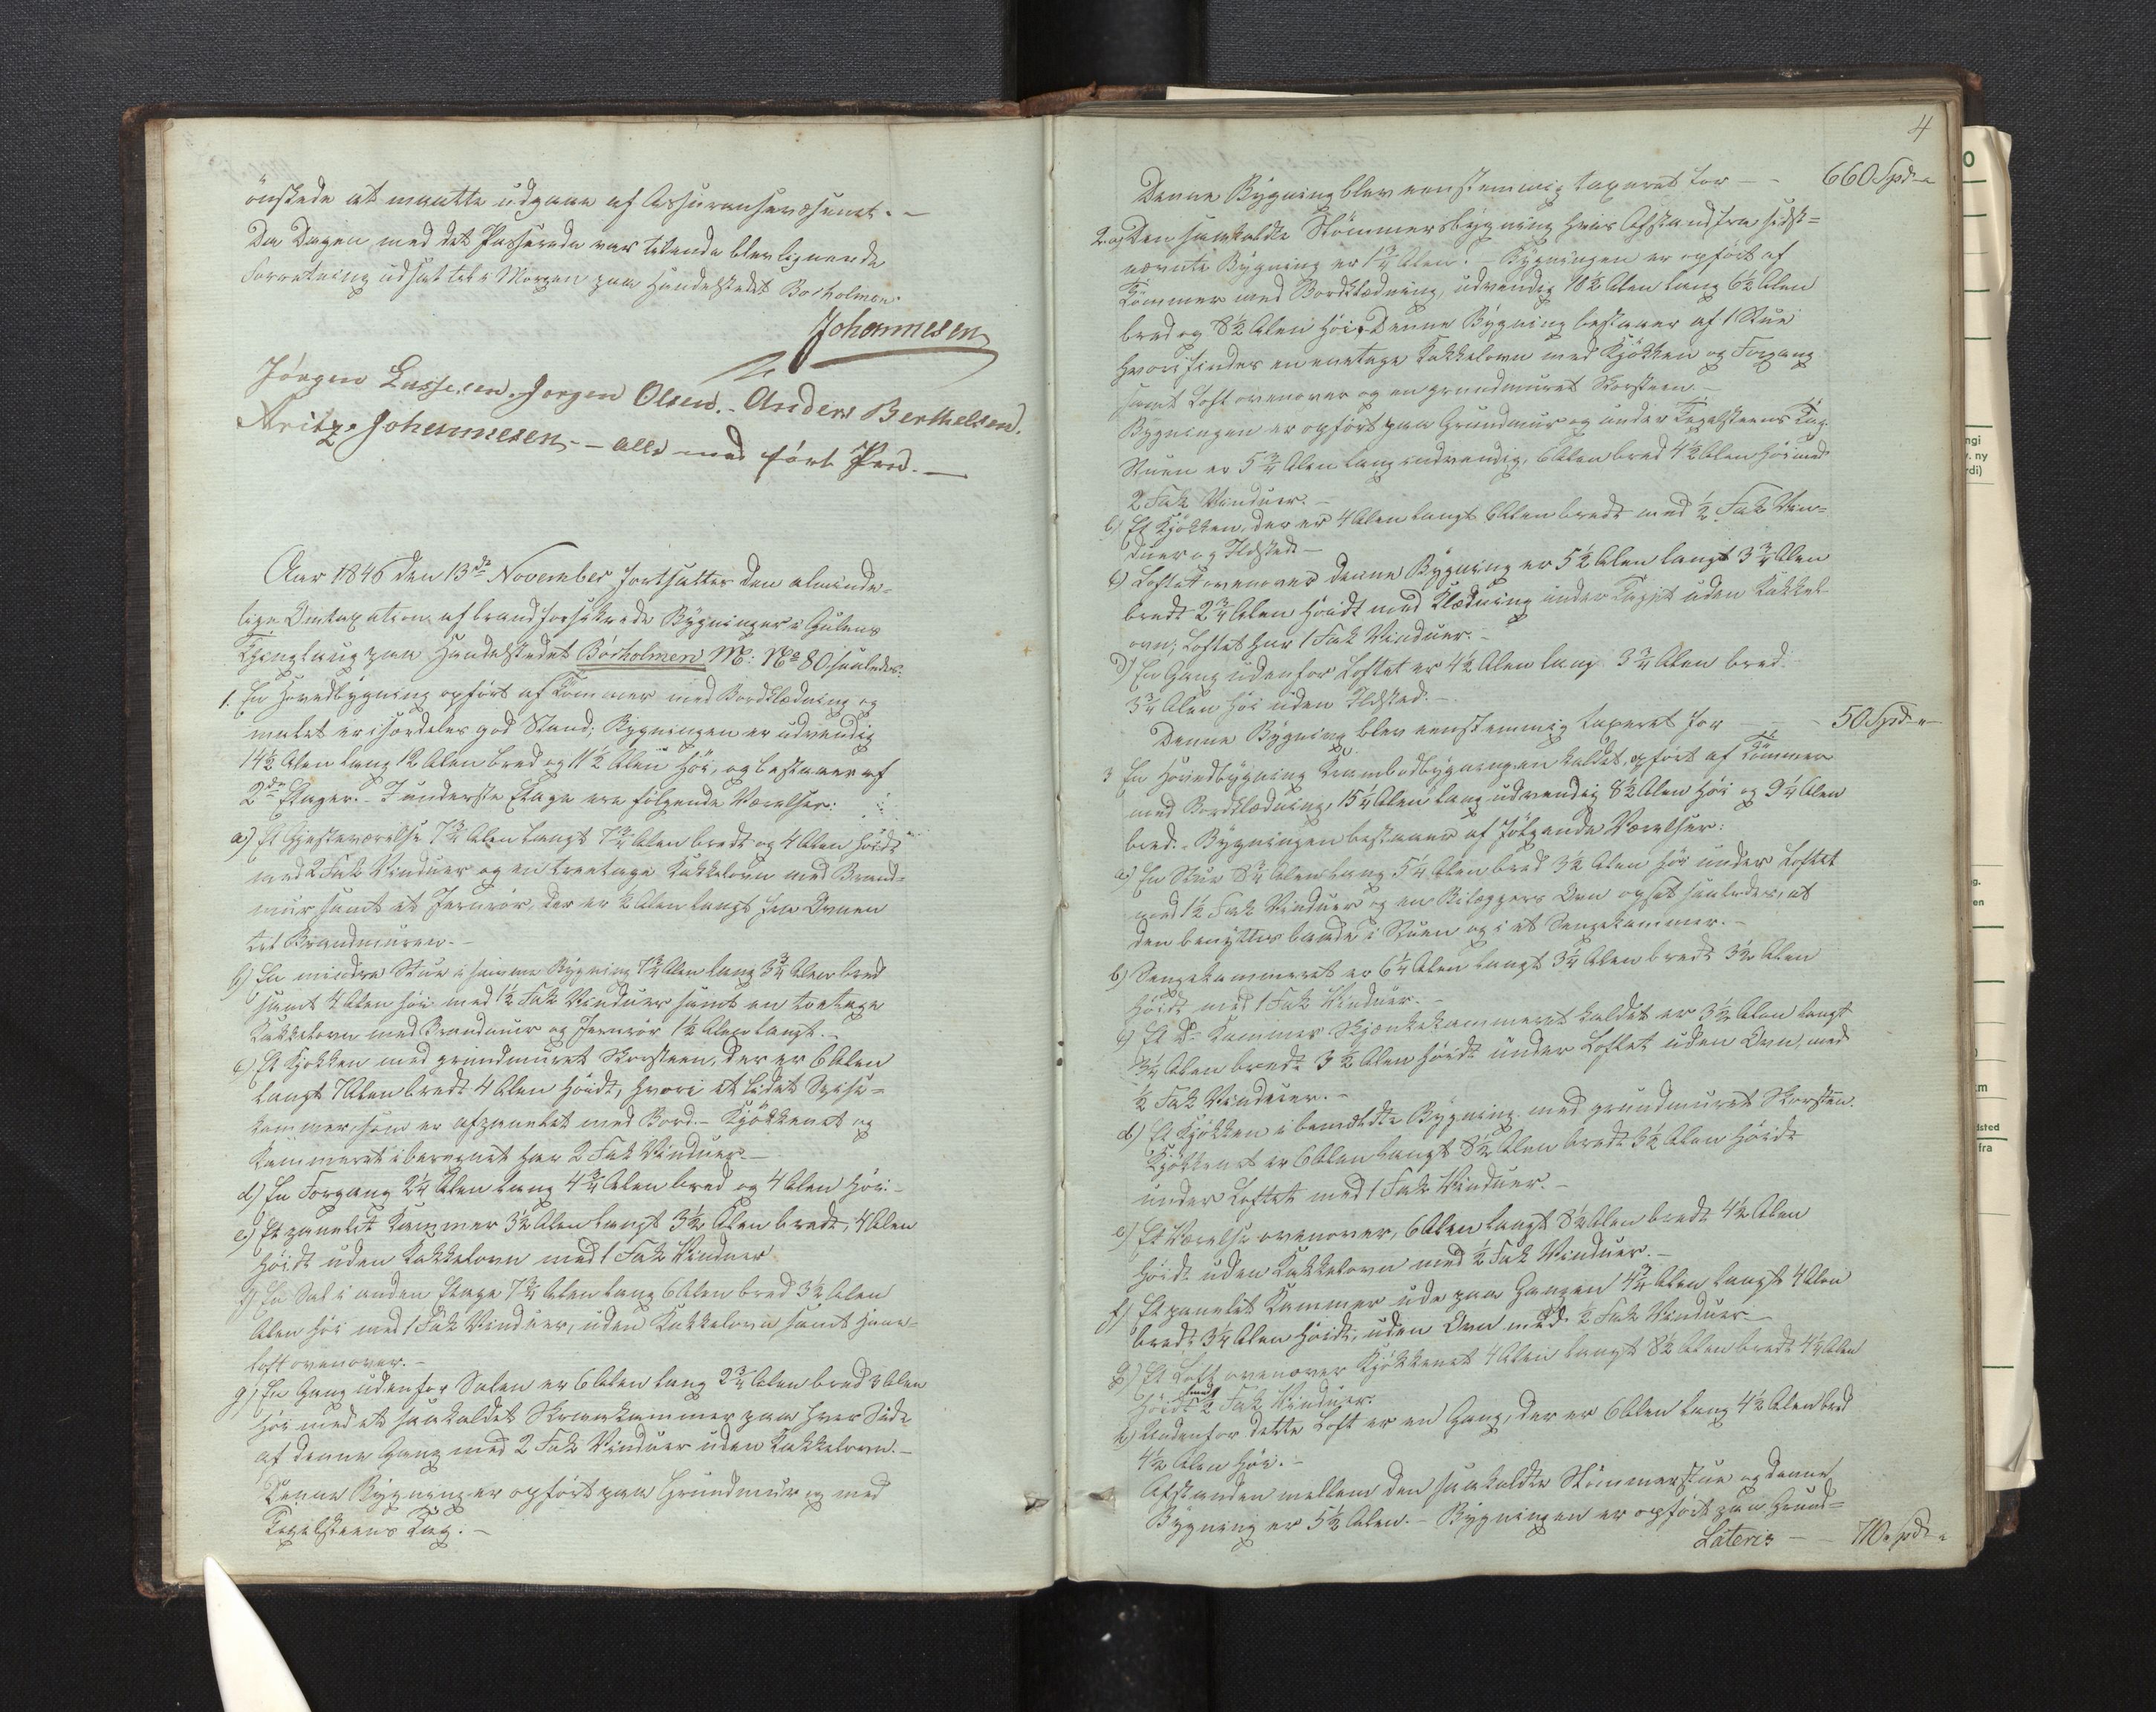 ønskede at maatte udgaae af Assuranseræsenet. –
Da Dagen med det Passerede var lidende blev lignende
Forretning udsat til i Morgen paa Handelstedet Borholmen.
Johannesen
Jörgen Lassesen. Jorgen Olsen. – Anders Berthelsen.
Fritz Johannesen – alle med ført Pen. –
Aar 1846 den 13de November fortsattes den alminde-
lige Omtaxation af brandforsikrede Bygninger i Gulens
Thinglaug paa Handelstedet Bórholmen M: No 80 saaledes:
1. En Hovedbygning opført af Tømmer med Bordklædning og
malet er i særdeles god Stand; Bygningen er udvendig
14½ Alen lang 12 Alen bred og 11½ Alen høi, og bestaaer af
2de Etager. – I underste Etage ere følgende Værelser:
a) Et Gjesteværelse 7¾ Alen langt 7¾ Alen bredt og 4 Alen høidt
med 2 Fak Vinduer og en treetages Kakkelovn med Brand-
muur samt et Jernrør, der er ½ Alen langt fra Ovnen
til Brandmuren. –
b) En mindre Stue i samme Bygning 7¾ Alen lang 3¾ Alen bred
samt 4 Alen høi med 1½ Fak Vinduer samt en toetages
Kakkelovn med Brandmuur og Jernrør 1½ Alen langt. –
c) Et Kjøkken med grundmuret Skorsteen, der er 6 Alen
langt 7 Alen bredt 4 Alen høidt, hvori et lidet Spise-
kammer, som er afpanelet med Bord. – Kjøkkenet og
Kammeret iberegnet har 2 Fak Vinduer. –
d) En Forgang 2¼ Alen lang 4¾ Alen bred og 4 Alen høi. –
e) Et panelet Kammer 3½ Alen langt 3½ Alen bredt, 4 Alen
høidt uden Kakkelovn med 1 Fak Vinduer
f) En Sal i anden Etage 7¾ Alen lang 6 Alen bred 3½ Alen
Alen høi med 1 Fak Vinduer, uden Kakkelovn samt Hane-
loft ovenover. –
g) En Gang udenfor Salen er 6 Alen lang 2¾ Alen bred 3 Alen
høi med et saakaldet Skraakammer paa hver Side
af denne Gang med 2 Fak Vinduer uden Kakkelovn. –
Denne Bygning er opført paa Grundmuur og med
Tegelsteens Tag. –
4
Denne Bygning blev eenstemmig taxeret for – – 660 Spd "
2. a) Den saakaldte Stømmersbygning hvis Afstand fra sidst-
nævnte Bygning er 1¾ Alen. – Bygningen er opført af
Tømmer med Bordklædning, udvendig 10½ Alen lang 6½ Alen
bred og 8½ Alen høi. Denne Bygning bestaaer af 1 Stue
hvori findes en eenetages Kakkelovn med Kjøkken og Forgang
samt Loft ovenover og en grundmuret Skorsteen. –
Bygningen er opført paa Grundmuur og under Tegelsteens Tag.
Stuen er 5¾ Alen lang indvendig, 6 Alen bred 4½ Alen høi med
2 Fak Vinduer. –
b) Et Kjøkken, der er 4 Alen langt 6 Alen bredt med ½ Fak Vin-
duer og Ildsted –
c) Loftet ovenover denne Bygning er 5½ Alen langt 3¾ Alen
bredt 2¾ Alen høidt med Klædning under Taget uden Kakkel-
ovn; Loftet har 1 Fak Vinduer. –
d) En Gang udenfor Loftet er 4½ Alen lang 3¾ Alen bred
3¾ Alen høi uden Ildsted. –
Denne Bygning blev eenstemmig taxeret for – – – 50 Spd "
3 En Hovedbygning Krambodbygningen kaldet, opført af Tømmer
med Bordklædning, 15¼ Alen lang udvendig 8½ Alen høi og 9¼ Alen
bred. – Bygningen bestaaer af følgende Værelser:
a) En Stue 8¼ Alen lang 5¼ Alen bred 3½ Alen høi under Loftet
med 1½ Fak Vinduer og en Bilæggers Ovn opsat saaledes, at
den benyttes baade i Stuen og i et Sengekammer. –
b) Sengekammeret er 6¼ Alen langt 3¼ Alen bredt 3½ Alen
høidt med 1 Fak Vinduer. –
c) Et do Kammer Skjænkekammeret kaldet er 3½ Alen langt
3¼ Alen bredt 3½ Alen høidt under Loftet uden Ovn, med
½ Fak Vinduer. –
d) Et Kjøkken i bemeldte Bygning med grundmuret Skorsten.
Kjøkkenet er 6 Alen langt 8½ Alen bredt 3½ Alen høidt
under Loftet med 1 Fak Vinduer. –
e) Et Værelse ovenover, 6 Alen langt 8½ Alen bredt 4½ Alen
høidt uden Kakkelovn med ½ Fak Vinduer. –
f) Et panelet Kammer ude paa Gangen 4¾ Alen langt 4 Alen
bredt 3¼ Alen høidt, uden Ovn med ½ Fak Vinduer –
g) Et Loft ovenover Kjøkkenet 4 Alen langt 8½ Alen bredt 4½ Alen
høidt med ½ Fak Vinduer.
h) Udenfor dette Loft er en Gang, der er 6 Alen lang 4½ Alen bred
4½ Alen høi. –
Afstanden mellem den saakaldte Stømmerstue og denne
Bygning er 5½ Alen. – Bygningen er opført paa Grund-
Lateris – – 710 Spd "